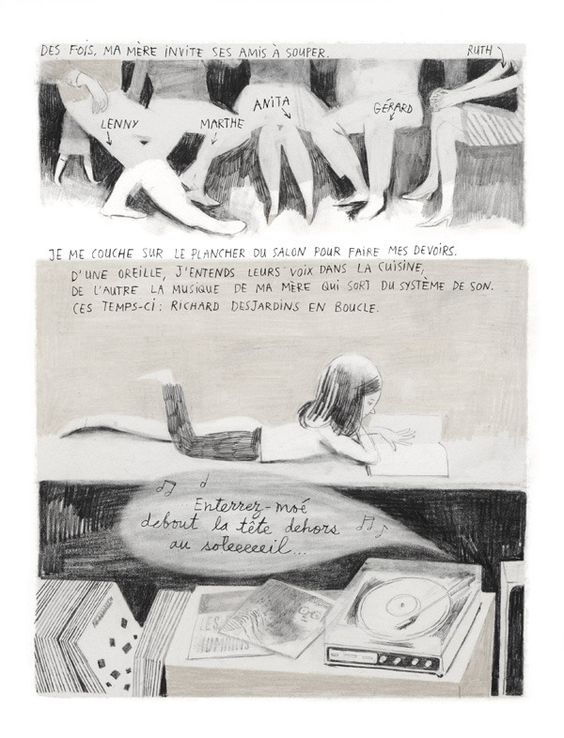 DES FOIS, MA MÈRE INVITE SES AMIS À SOUPER.
RUTH
ANITA
GÉRARD
LENNY
MARTHE
JE ME COUCHE SUR LE PLANCHER DU SALON POUR FAIRE MES DEVOIRS.
D'UNE OREILLE, J'ENTENDS LEURS VOIX DANS LA CUISINE,
DE L'AUTRE LA MUSIQUE DE MA MÈRE QUI SORT DU SYSTÈME DE SON.
CES TEMPS-CI : RICHARD DESJARDINS EN BOUCLE.
Enterrez-moé
debout la tête dehors
au soleeeeeil...
LES
HUMAINS